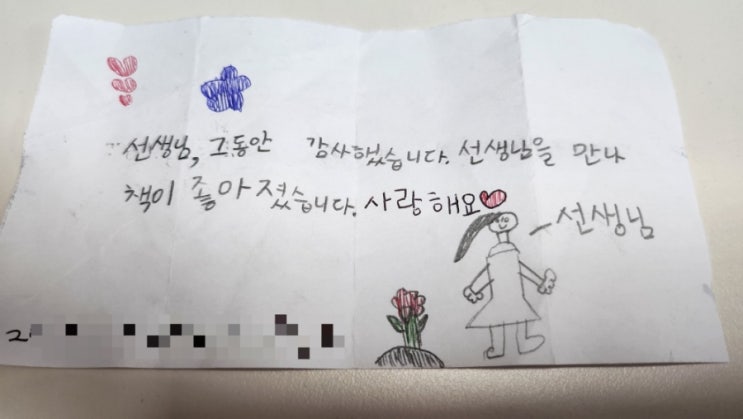 선생님, 그동안 감사했습니다. 선생님을 만나
책이 좋아졌습니다. 사랑해요
선생님